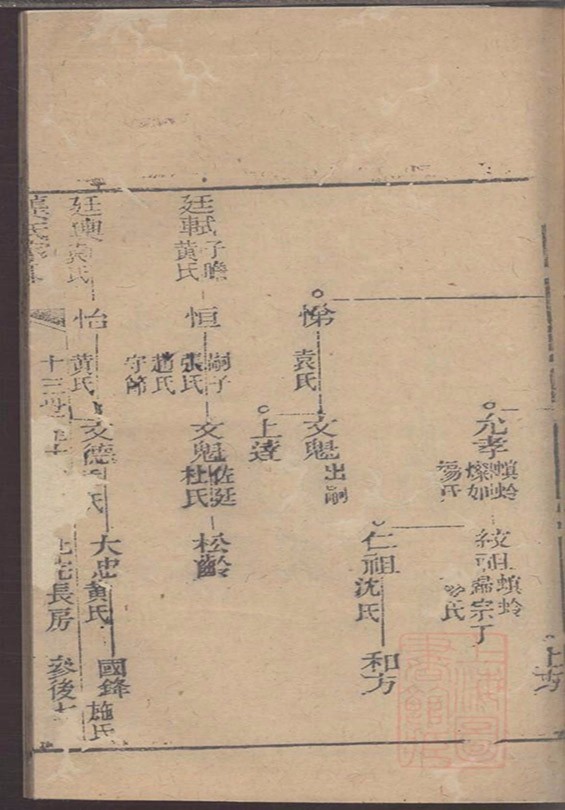 上方
允孝 螟蛉 燦如 楊氏
紋祖 螟蛉 歸宗丁 氏
仁祖 沈氏
和方
悌 袁氏
文魁 出嗣
上達
廷軾 子瞻 黄氏
恒 嗣子 張氏 趙氏 守節
文魁 佐廷 杜氏
松齡
廷輿 氏
怡 黄氏
文德 氏
大忠 黄氏
國鋒 施氏
氏家
十三世
長房
參後